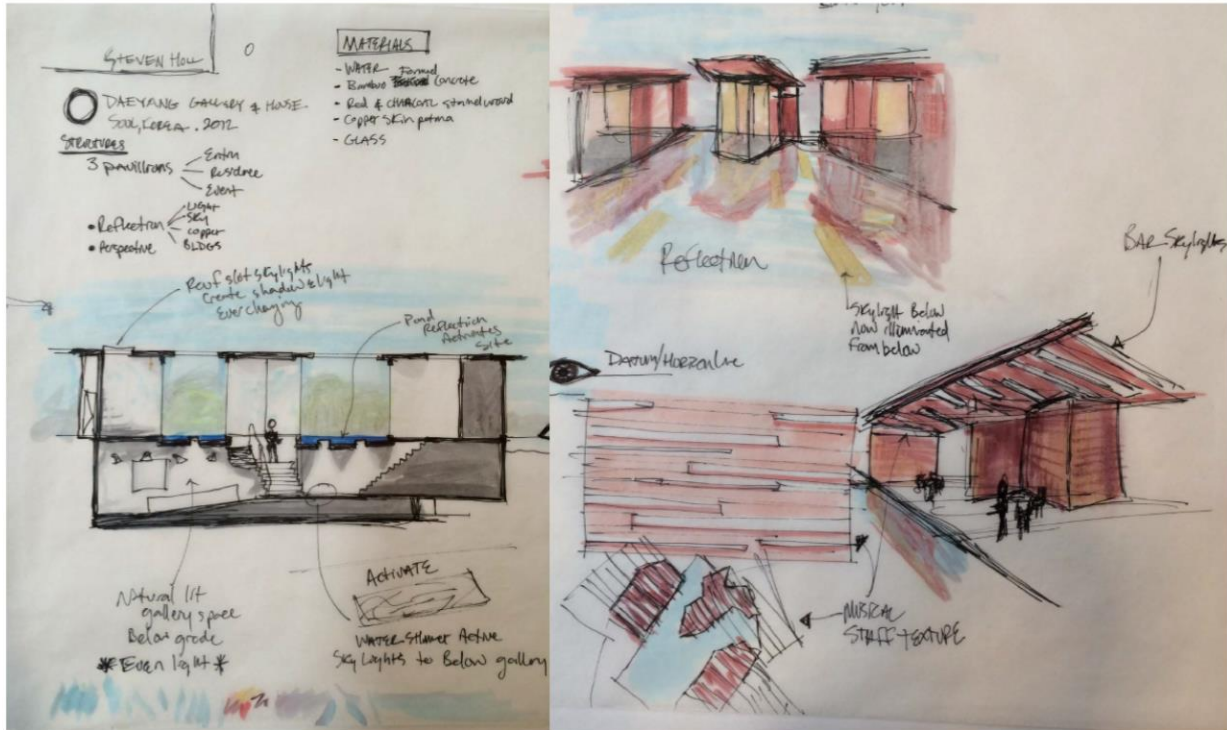 STEVEN HOLL
DAEYANG GALLERY & HOUSE
SOUL, KOREA. 2012
STRUCTURES
3 pavillions
Entry
Residence
Event
• Reflection
• Perspective
LIGHT
SKY
copper
BLDGS
MATERIALS
- WATER
- Bamboo Formed Concrete
- Red & CHARCOAL stained wood
- Copper Skin patina
- GLASS
Roof slot skylights
Create shadow & light
Ever changing
Pond
Reflection
Activates
Site
Natural lit
gallery space
Below grade
*Even light*
ACTIVATE
WATER Active
Sky Lights to Below gallery
Reflection
Skylight Below
now illuminated
from below
BAR SkyLights
DATUM/HORIZON Line
MUSICAL
STAFF TEXTURE